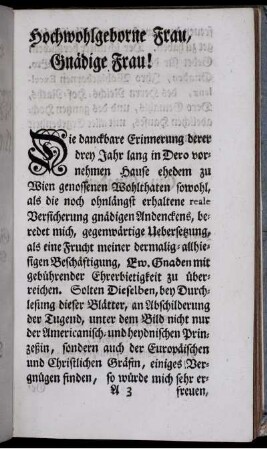 Hochwohlgeborne Frau,
Gnädige Frau!
Die danckbare Erinnerung derer
drey Jahr lang in Dero vor-
nehmen Hause ehedem zu
Wien genossenen Wohlthaten sowohl,
als die noch ohnlängst erhaltene reale
Versicherung gnädigen Andenckens, be-
redet mich, gegenwärtige Uebersetzung,
als eine Frucht meiner dermalig-allhie-
sigen Beschäftigung, Ew. Gnaden mit
gebührender Ehrerbietigkeit zu über-
reichen. Solten Dieselben, bey Durch-
lesung dieser Blätter, an Abschilderung
der Tugend, unter dem Bild nicht nur
der Americanisch- und heydnischen Prin-
zeßin, sondern auch der Europäischen
und Christlichen Gräfin, einiges Ver-
gnügen finden, so würde mich sehr er-
A 3 freuen,